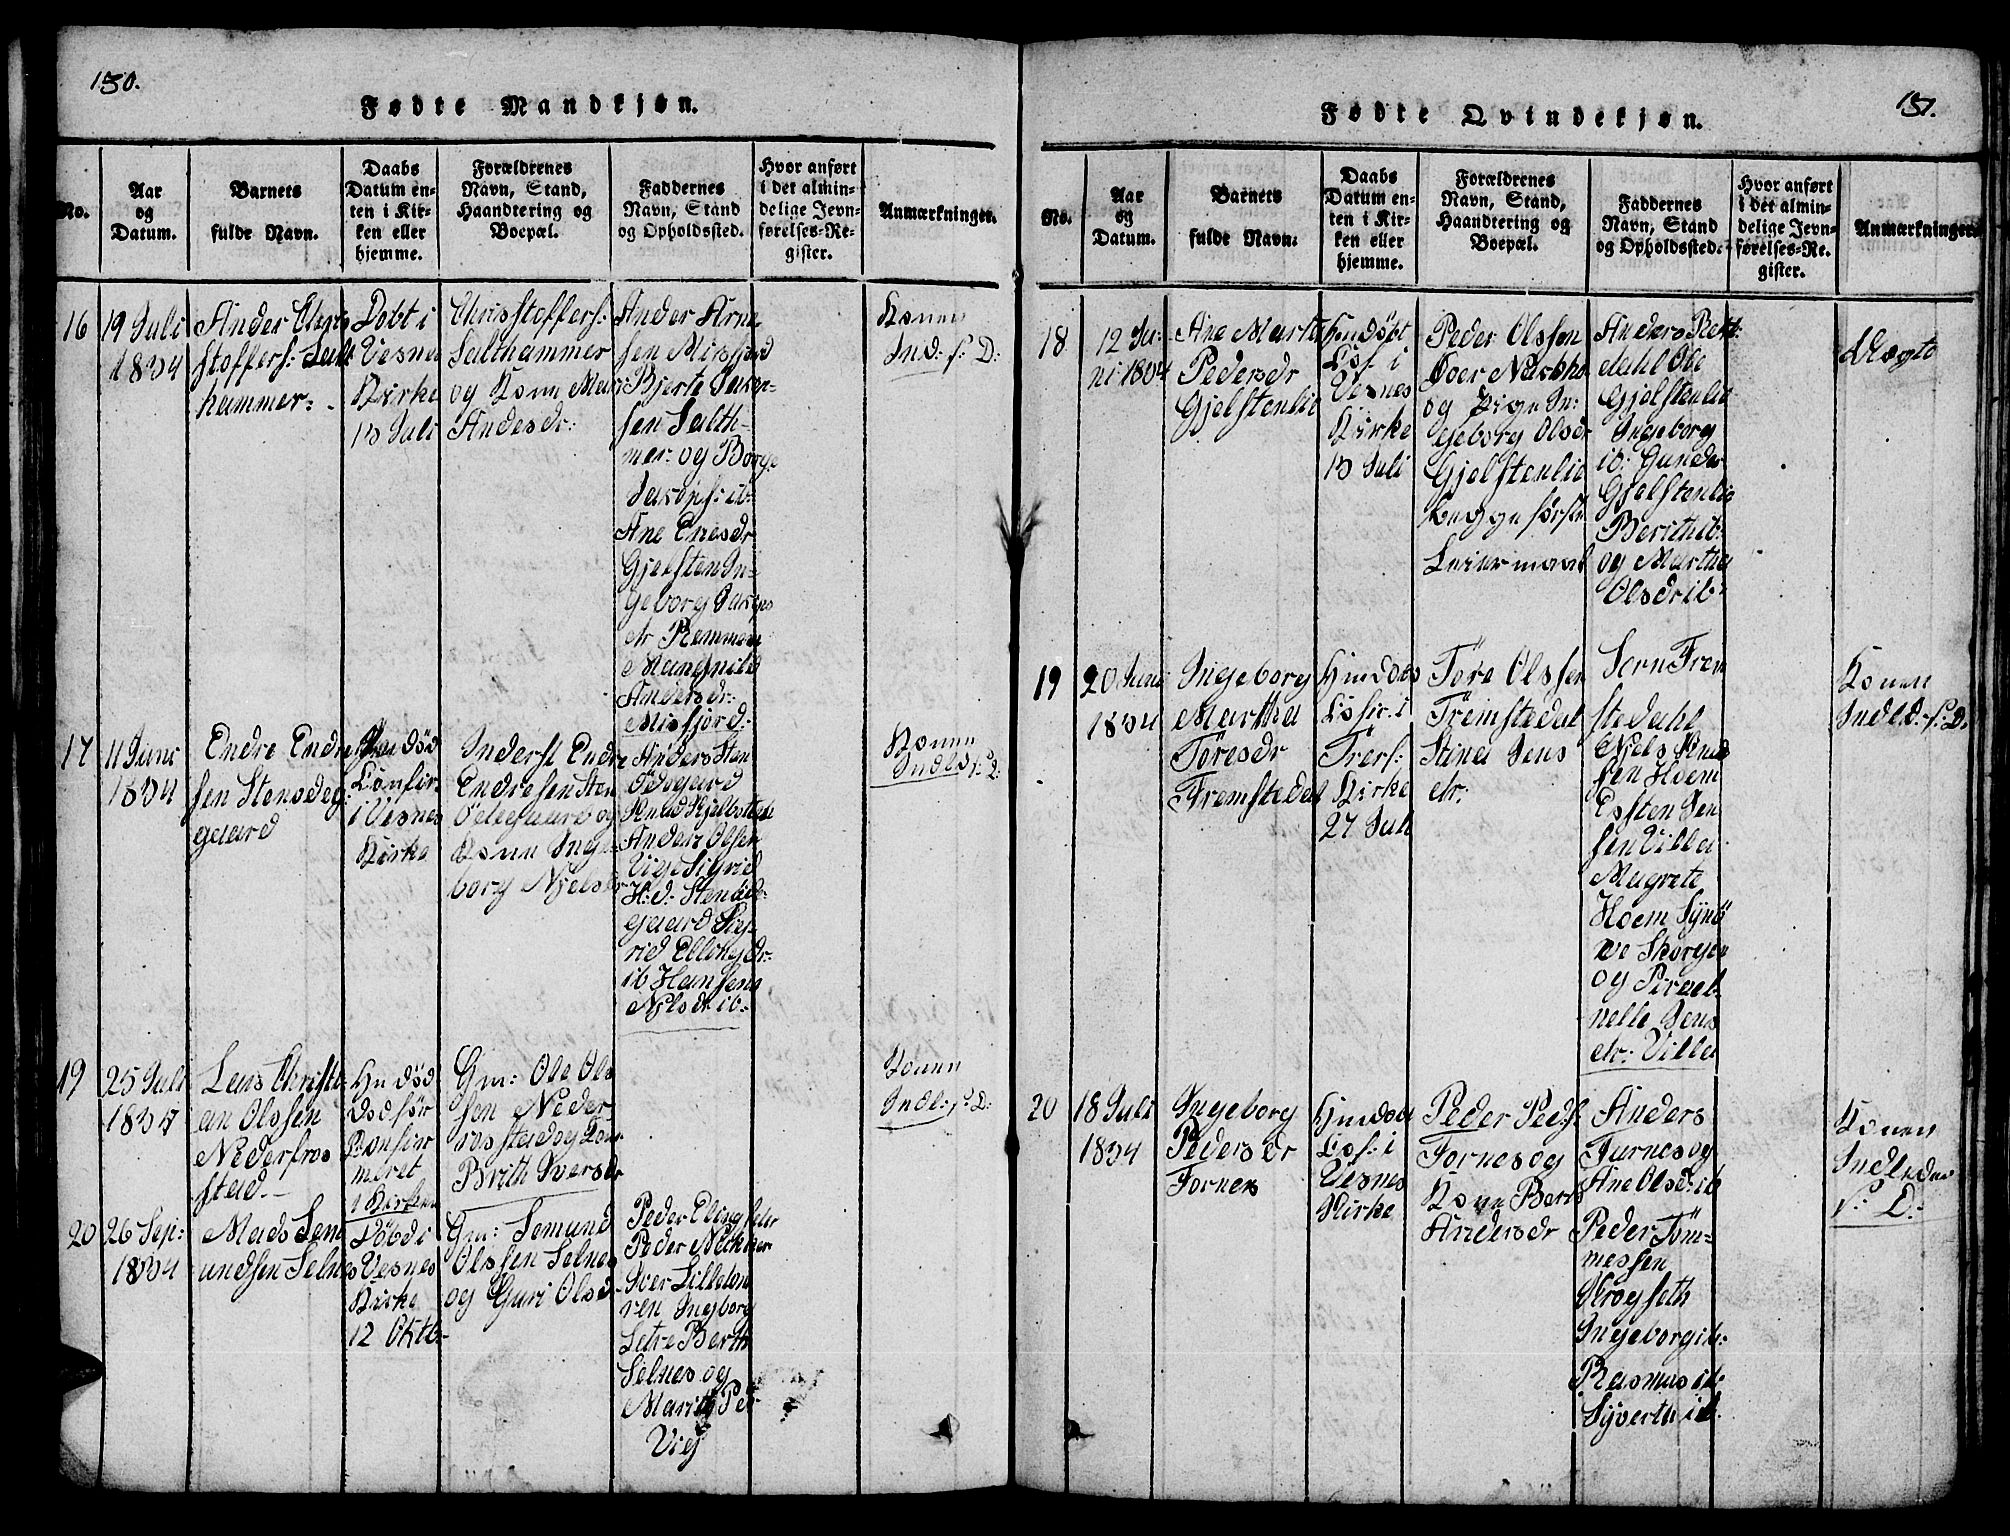 130.
Fødte Mandkjøn.
No.
Aar
og
Datum.
Barnets
fulde Navn.
Daabs
Datum en-
ten i Kir-
ken eller
hjemme.
Forældrenes
Navn, Stand,
Haandtering og
Boepæl.
Faddernes
Navn, Stand
og Opholdssted.
Hvor anført
i det almin-
delige Jevn-
førelses-Re-
gister.
Anmærkninger.
16
19 Juli
1834
Ander Christo
stoffers: Salt
hammer:
Døbt i
Vesnes
Kirke
13 Juli
Christoffers:
Salthammer
og Kone Mar
Andesdr:
Ander Arne
sen Misfjord
Bjerte
sen Salth-
mer: og Børge
ib:
Ane Enesdr
Gjelsten In-
geborg
dr Remmem
Magnild
Andersdr:
Misfjord:
Konen
Ind: f: D:
17
11 Juni
1834
Endre Endre
sen Stensdeg:
gaard
Hm død
Confir:
i Vesnes
Kirke
Inderst Endre
Endresen Sten
og
Kone Inge
borg Nielsdr
Anders Sten
ødegaard
Knud
Ander Olsen
Vige Sigrid
H: d: Stenøde
gaard Sig-
rid
ib Hansena
Nilsdr ib:
Konen
Indl: f: D:
19
25 Juli
1834
Lars Christi
an Olssen
Nederfros
stad.
Hm død
Død før
Confir
meret
i Kirken
Gm: Ole Ols
sen Neder
og Kone
Brith Iversdr
Konen
Indl: f: D:
20
26 Sep:
1834
Mads Sem
undsen Selnes
Døbd i
Vesnes
Kirke
12 Oktb:
Gm: Semund
Olssen Selnes
og Guri Olsd
Peder
Peder
Iver Lilleløn
ren Ingeborg
Berth
Selnes og
Marith Per
Viej
131.
Fødte Qvindekjøn.
No.
Aar
og
Datum.
Barnets
fulde Navn.
Daabs
Datum en-
ten i Kir-
ken eller
hjemme.
Forældrenes
Navn, Stand,
Haandtering og
Boepæl.
Faddernes
Navn, Stand
og Opholdssted.
Hvor anført
i det almin-
delige Jevn-
førelses-Re-
gister.
Anmærkninger.
18
12 Ju:
ni 1834
Ane Marta
Pedersdr
Gjelstenlie
Hmdøbt
Cosf: i
Vesnes
Kirke
13 Juli
Peder Olssen
og Pige In:
geborg Olsdr
Gjelstenlie
begge første
Leiermaal
Anders Rem:
dahl Ole
Gjelstenlie
Ingeborg
ib: Gunder
Gjelstenlie
Berith ib:
og Martha
Olsdr ib:
Uægte
19
20 Juni
1834
Ingeborg
Martha
Tøresdr
Fremstedal
Hmdøbt
Cosfir: i
Tresf:
Kirke
27 Juli
Tøre Olssen
Fremstedal
Stina Jens
dr:
Jern Frem
stedahl
Niels Knud
sen Hoem
Esten Jen
sen Villa
Magrete
Hoem Synø
ve Skorgen
og
nelle Jens
dr: Villa
Konen
Indl.d: f: D:
20
18 Juli
1834
Ingeborg
Pedersdr
Fornes
Hmdøbt
Cosf: i
Vesnes
Kirke
Peder Peds:
Fornes og
Kone Beret
Andersdr
Anders
Furnes og
Ane Olsdr: ib
Peder Tøm-
messen
Vrogseth
Ingeborg ib:
Rasmus ib:
Syvert ib
Konen
Indleden
f: D: